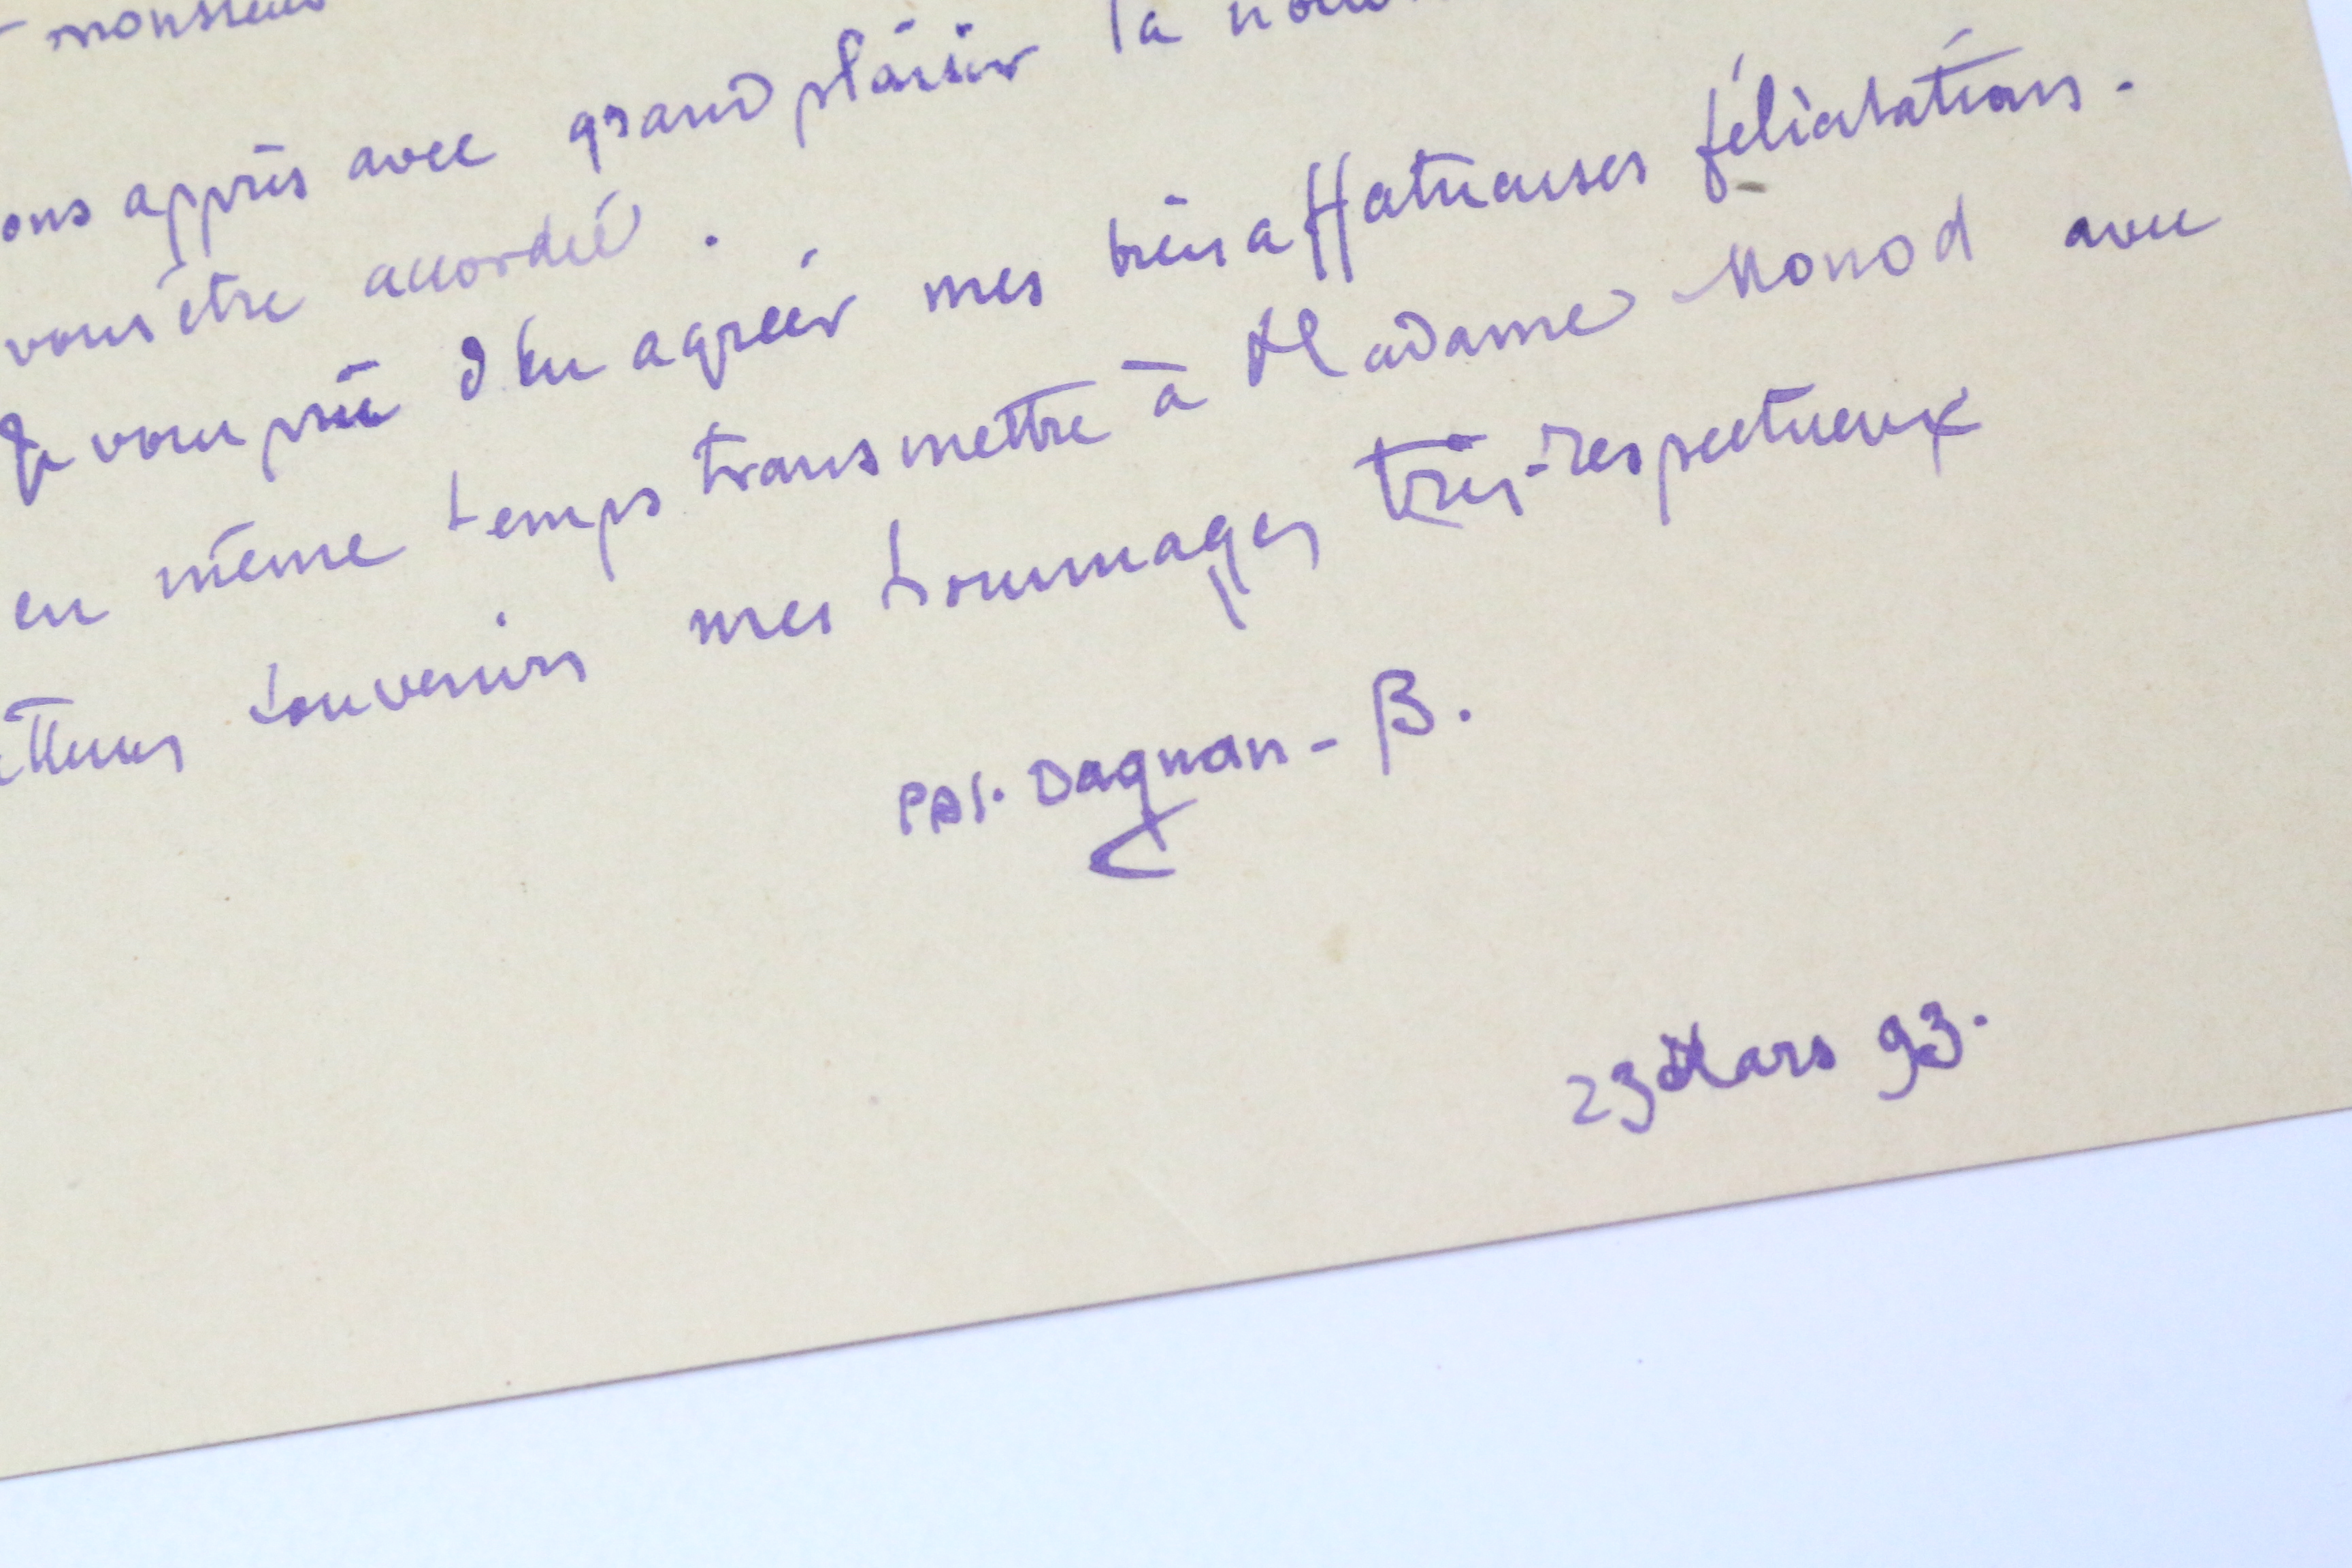 monsieur
ons appris avec grand plaisir la
vous être accordée.
Je vous prie d'en agréer mes bien affectueuses félicitations.
en même temps transmettre à Madame Monod avec
souvenirs mes hommages très-respectueux
PAJ. Dagnan-B.
23 Mars 93.